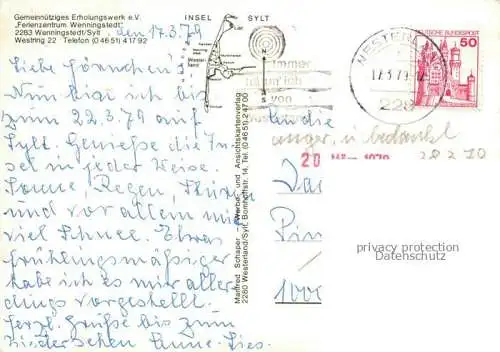 Gemeinnütziges Erholungswerk e.V.
„Ferienzentrum Wenningstedt"
2283 Wenningstedt/Sylt
Westring 22 Telefon (0 46 51) 4 17 92
den 17.3.79
Liebe
Nun liege ich bis
zum 22.3.79 auf
Sylt. Genieße die In-
sel in jeder Weise.
Sonne, Regen, Sturm
und vor allem nur
viel Schnee. Etwas
frühlingsmäßiger
habe ich es mir aller
dings vorgestellt.
Herzl. Grüße bis zum
Wiedersehen Anne-Lies.
Manfred Schaper - Werbe- und Ansichtskartenverlag
2280 Westerland/Sylt, Bonhoffstr. 14, Tel. (0 46 51) 2 47 00
INSEL SYLT
Wester-
land
immer
träum' ich
von
WESTERLAND
17.3.79
228
DEUTSCHE BUNDESPOST
50
u. bedankt
20. MRZ. 1979
1000
privacy protection
Datenschutz